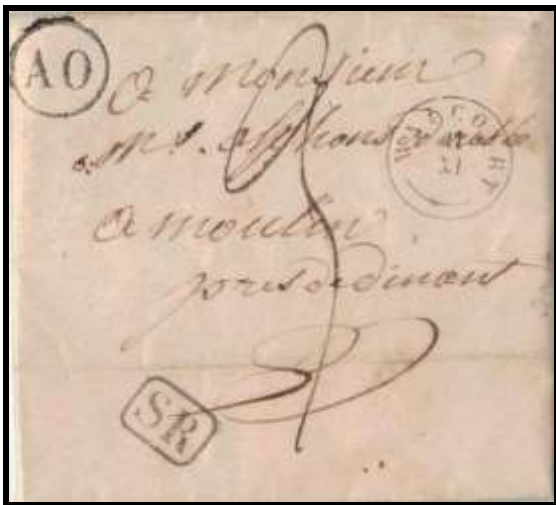 AO
a Monsieur
Mr. Alphons
a moulin
pres de dinant
SR